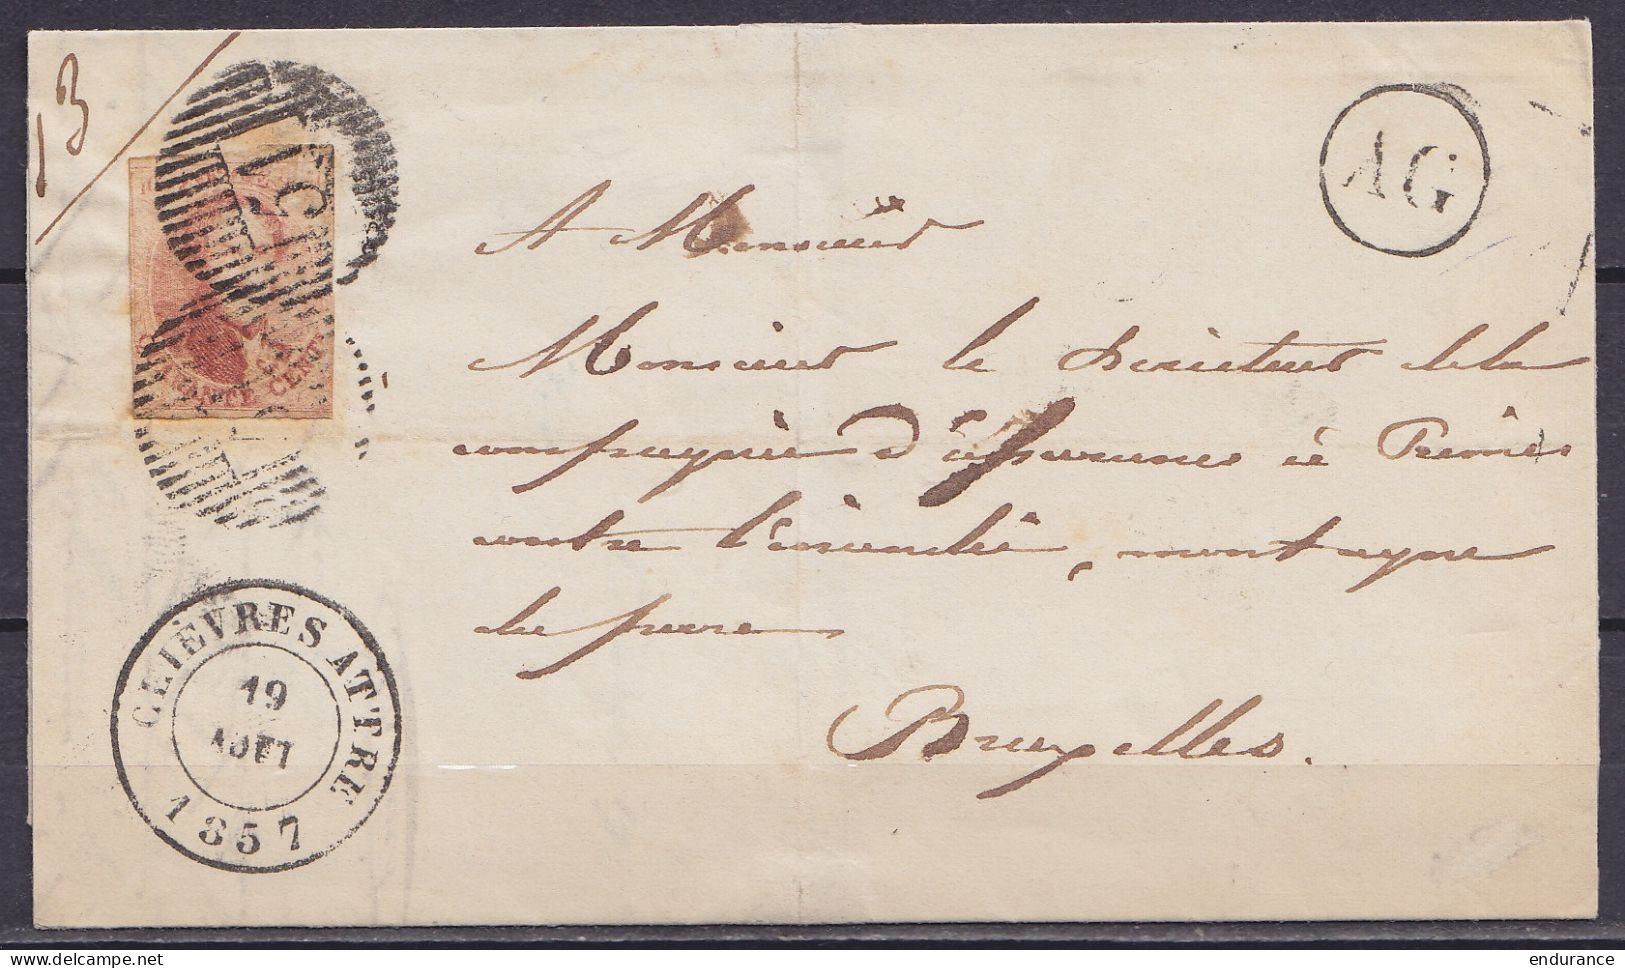 13
AG
151
QUARANTE CENTS
A Monsieur
Monsieur le Directeur de la
compagnie d'assurances à Primes
contre l'incendie, montagne
de
Bruxelles.
CHIÈVRES ATTRE
19
AOUT
1857
delcampe.net
endurance